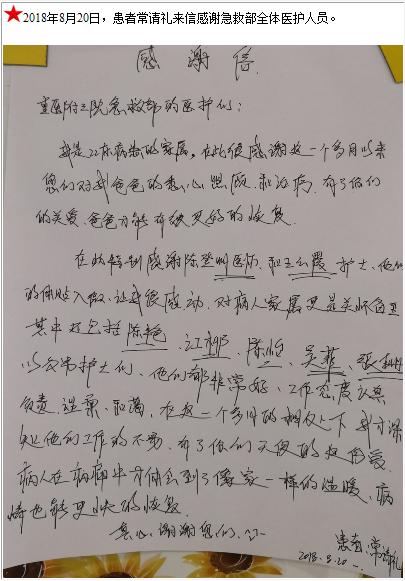 ★2018年8月20日，患者常请礼来信感谢急救部全体医护人员。
感谢信
重医附二院急救部的医护们：
我是22床病患的家属，在此很感谢这一个多月以来
您们对我爸爸的悉心照顾和治病，有了你们
的关爱，爸爸才能有效更好的恢复。
在此特别感谢陈 医师、和王 霞护士、他们
的体贴入微、让我很感动、对病人家属更是关怀
其中 包括陈艳、江 、陈 、吴菲、张
以及 护士们、他们都非常好、工作态度认真
负责、 、和蔼，在这一个多月的相处下我才深
知他们工作的不易，有了你们天使的 爱，
病人在病痛中才体会到了像家一样的温暖、病
情也能更快的恢复
衷心谢谢您们
患者：常请礼
2018.8.20